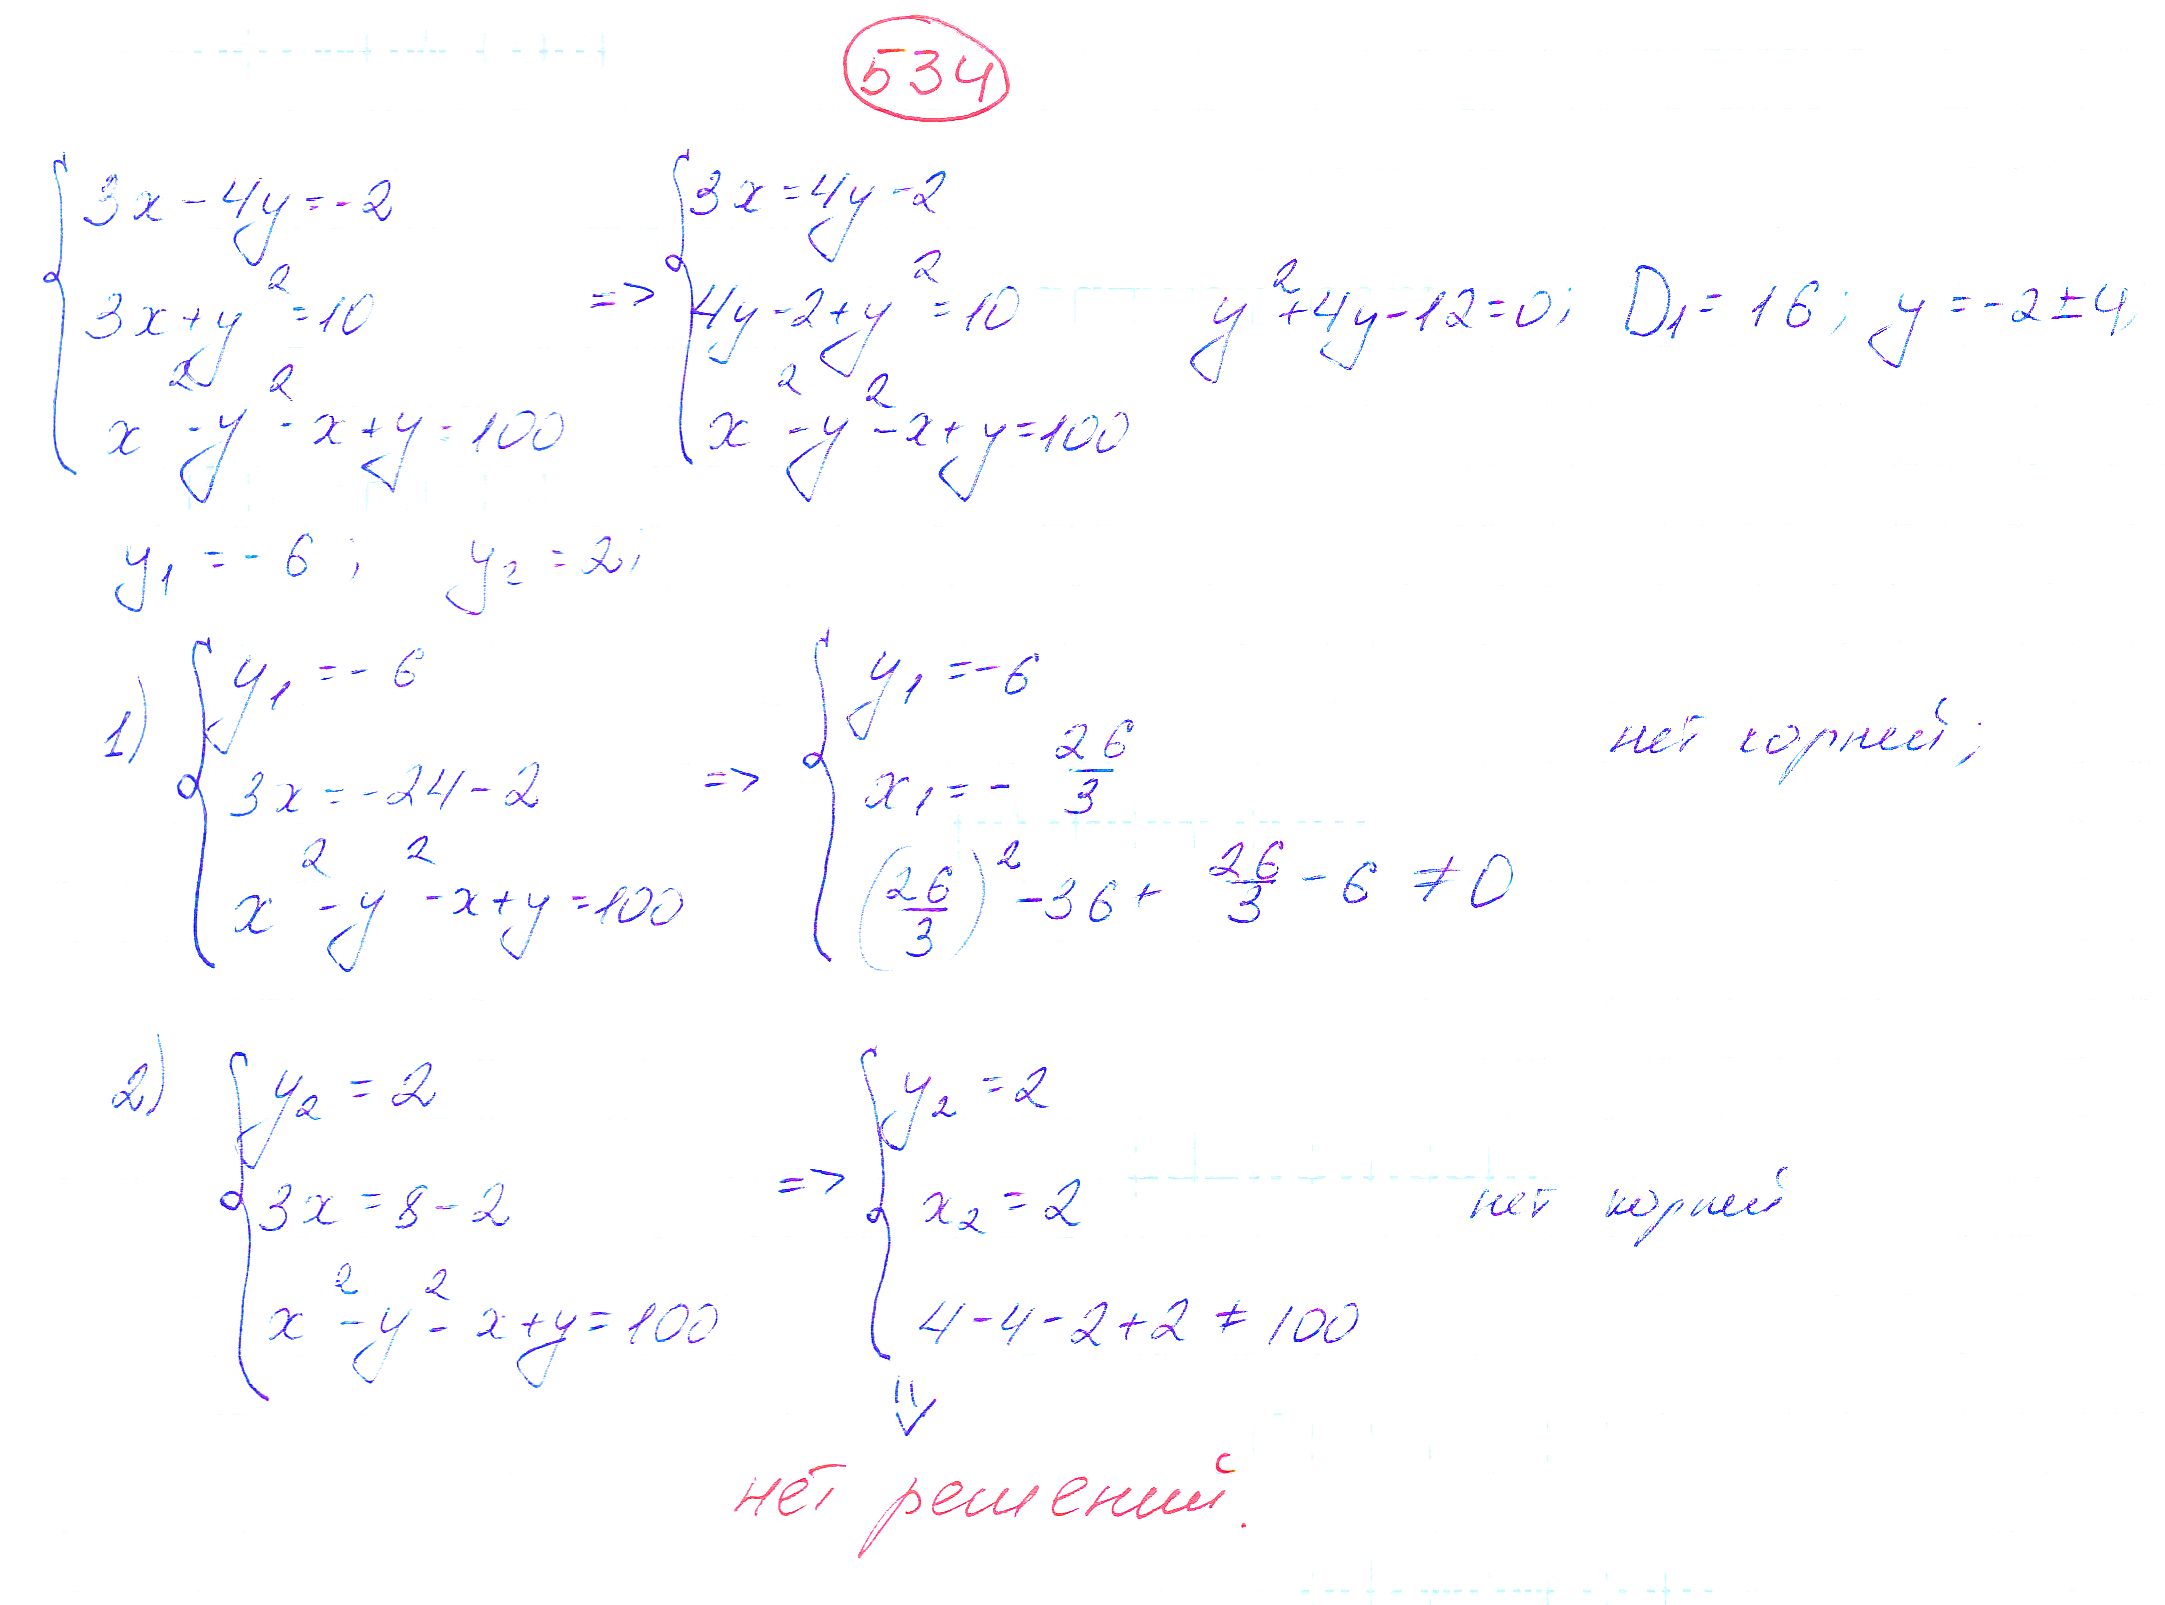 534
3x - 4y = -2
3x + y² = 10
x² - y² - x + y = 100
=>
3x = 4y - 2
4y - 2 + y² = 10
x² - y² - x + y = 100
y² + 4y - 12 = 0; D₁ = 16; y = -2 ± 4;
y₁ = -6; y₂ = 2;
1)
y₁ = -6
3x = -24 - 2
x² - y² - x + y = 100
=>
y₁ = -6
x₁ = - 26/3
(26/3)² - 36 + 26/3 - 6 ≠ 0
нет корней;
2)
y₂ = 2
3x = 8 - 2
x² - y² - x + y = 100
=>
y₂ = 2
x₂ = 2
4 - 4 - 2 + 2 ≠ 100
нет корней
⇓
нет решений.